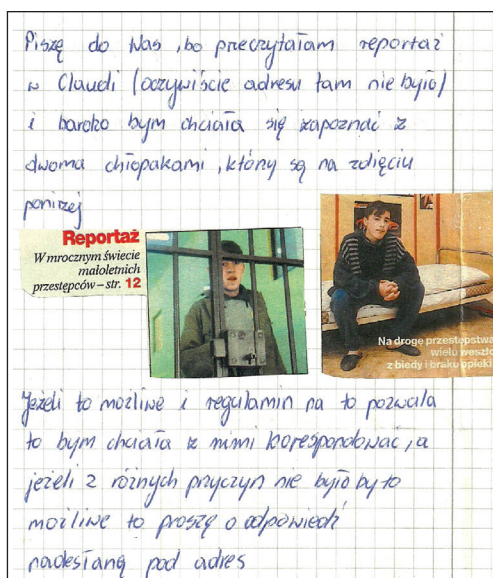 Piszę do Was, bo przeczytałam reportaż
w Claudi (oczywiście adresu tam nie było)
i bardzo bym chciała się zapoznać z
dwoma chłopakami, który są na zdięciu
ponirzej
Reportaż
W mrocznym świecie
małoletnich
przestępców – str. 12
Na drogę przestępstwa
wielu weszło
z biedy i braku opieki
Jeżeli to możliwe i regulamin na to pozwala
to bym chciała z nimi korespondować, a
jeżeli z różnych przyczyn nie było by to
możliwe to proszę o odpowiedź
nadesłaną pod adres